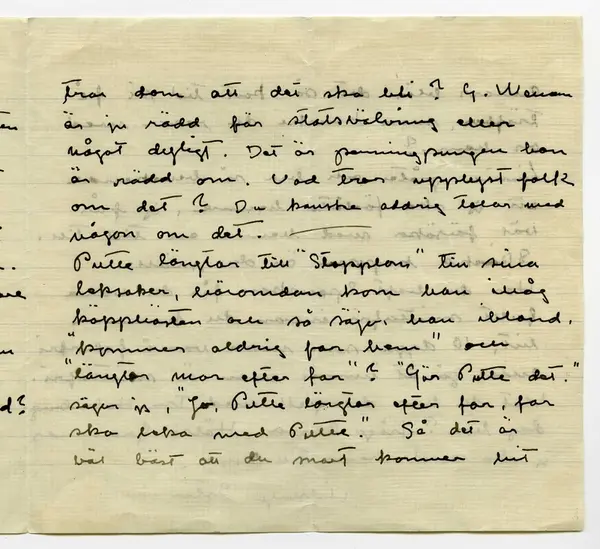 tror dom att det ska bli? G. Wennan
är ju rädd för statsvälvning eller
något dyligt. Det är penningpungen han
är rädd om. Vad tror upplyst folk
om det? Du kanske aldrig talar med
någon om det.
Putte längtar till "Stopplors" till sina
leksaker, häromdan kom han ihåg
käpphästen och så säger han ibland,
"kommer aldrig far hem" och
"längtar mor efter far"? "Gör Putte det."
säger jg, "Jo, Putte längtar efter far, far
ska leka med Putte." Så det är
väl bäst att du snart kommer hit
en
.
d?